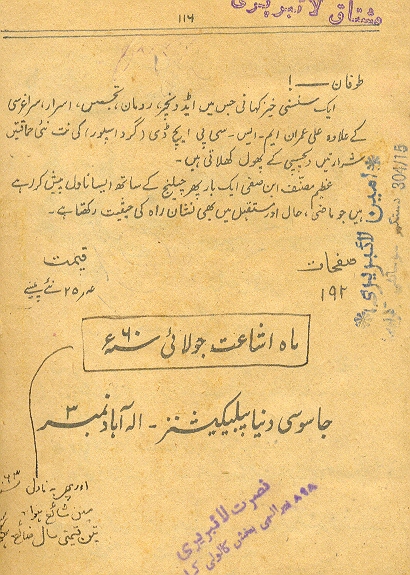 مشتاق لائبریری
۱۱۶
طوفان — !
ایک سنسنی خیز کہانی جس میں ایڈونچر، رومان، تجسس، اسرار، سراغرسی
کے علاوہ علی عمران ایم ۔ ایس ۔ سی پی ایچ ڈی (گرداسپور) کی نت نئی حماقتیں
شرارتیں دلچسپی کے پھول کھلاتی ہیں ۔
عظیم مصنف ابن صفی ایک بار پھر چیلنج کے ساتھ ایسا ناول پیش کر رہے
ہیں جو ماضی، حال اور مستقبل میں بھی نشان راہ کی حیثیت رکھتا ہے ۔
صفحات
۱۹۲
قیمت
۲۵ نئے پیسے
ماہ اشاعت جولائی ۶۰ء
جاسوسی دنیا پبلیکیشنز ۔ الہ آباد نمبر ۳
امین لائبریری
304/15 دستگیر
اور پھر یہ ناول ۶۳
میں شائع ہوا
تین قیمتی سال ضائع
نصرت لائبریری
۸۹۸ الٰہی بخش کالونی